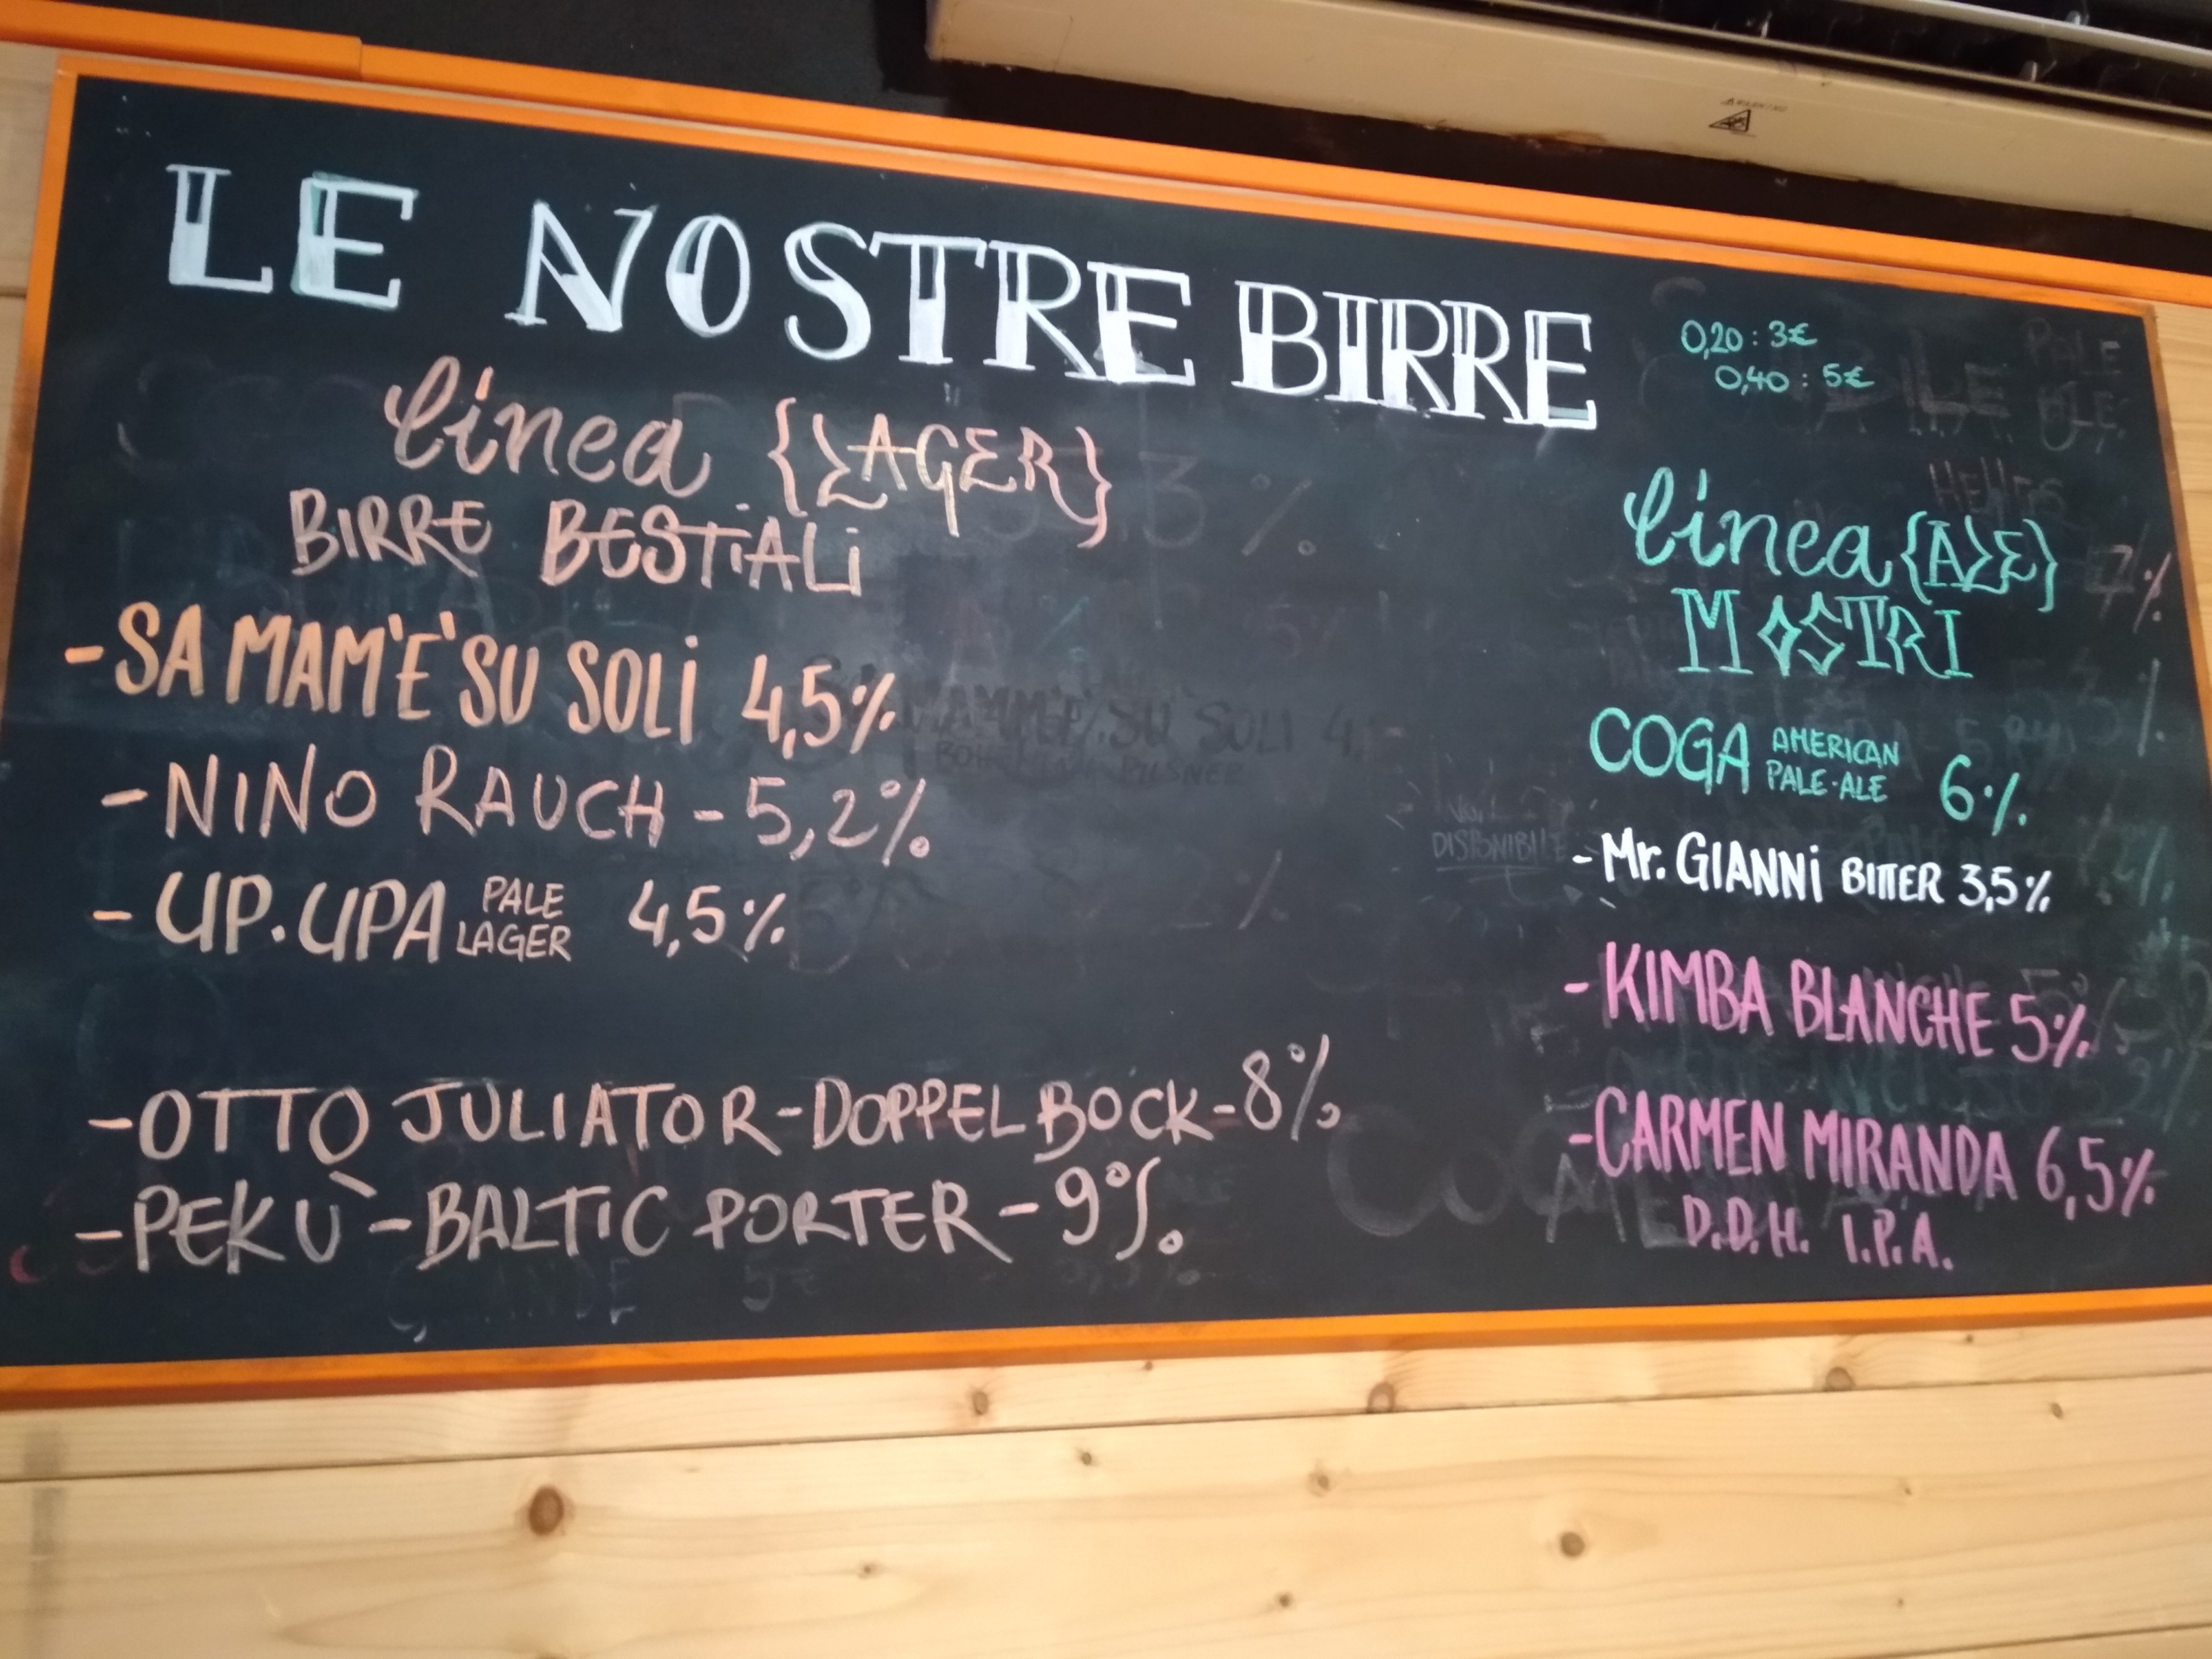 LE NOSTRE BIRRE
0,20 : 3€
0,40 : 5€
linea {LAGER}
BIRRE BESTiALi
- SA MAM'E' SU SOLi 4,5%
- NINO RAUCH - 5,2%
- UP. UPA PALE LAGER 4,5%
- OTTO JULIATOR - DOPPELBOCK - 8%
- PEKÙ - BALTIC PORTER - 9%
linea {ALE}
MOSTRI
COGA AMERICAN PALE-ALE 6%
- Mr. GIANNi BITTER 3,5%
- KIMBA BLANCHE 5%
- CARMEN MIRANDA 6,5%
D.D.H. I.P.A.